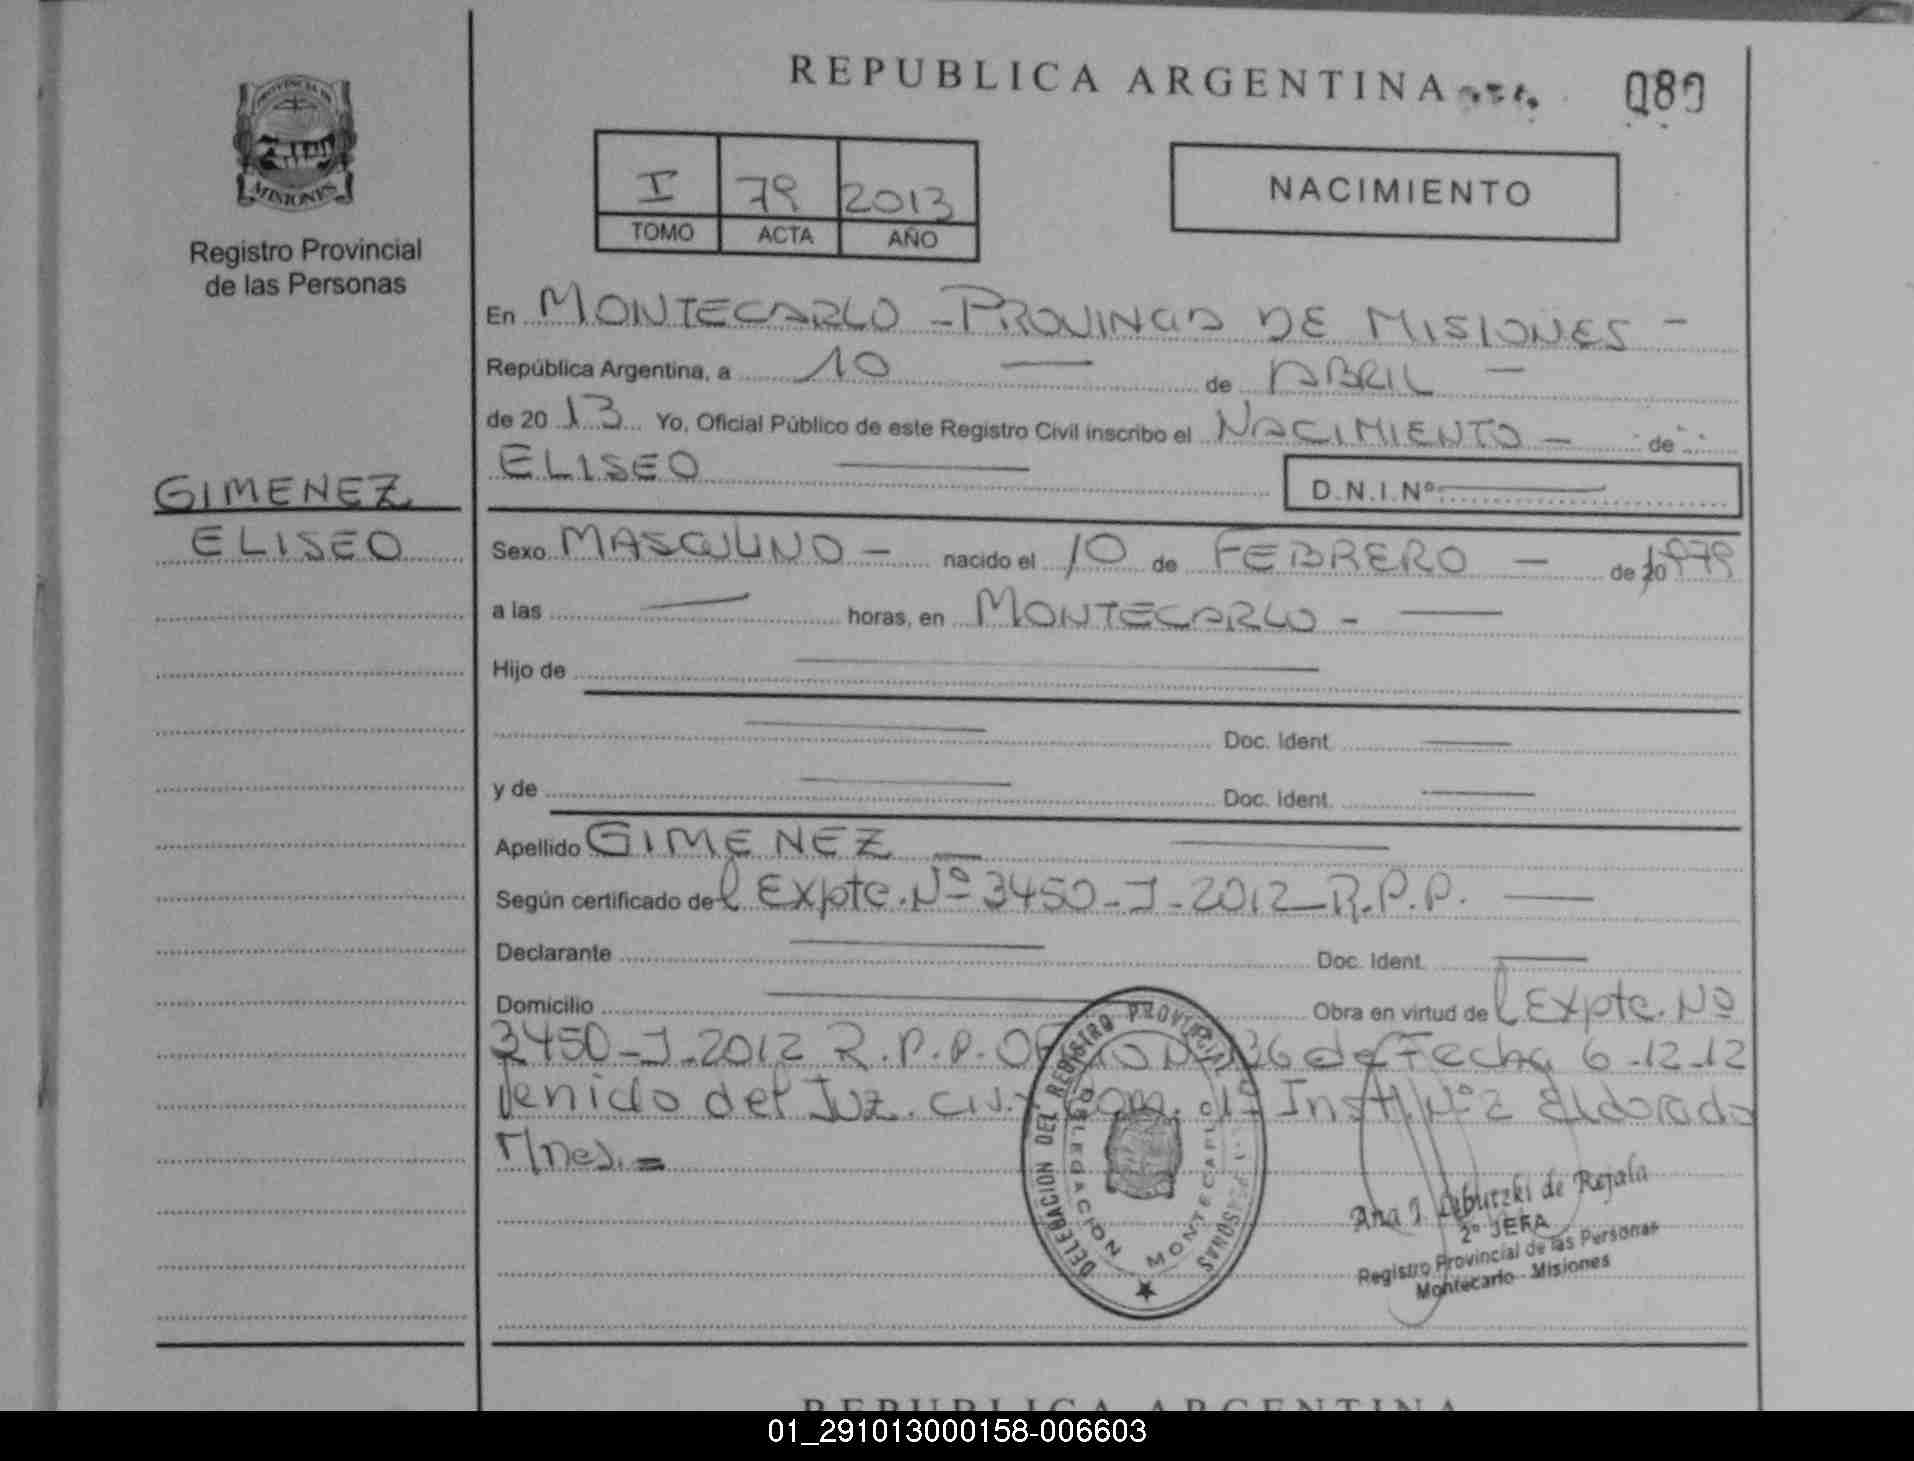 REPUBLICA ARGENTINA
PROVINCIA DE
MISIONES
Registro Provincial
de las Personas
I 79 2013
TOMO ACTA AÑO
NACIMIENTO
En MONTECARLO - PROVINCIA DE MISIONES -
República Argentina, a 10 — de ABRIL —
de 2013 Yo, Oficial Público de este Registro Civil inscribo el NACIMIENTO - de
ELISEO — D.N.I.Nº —
GIMENEZ
ELISEO
Sexo MASCULINO - nacido el 10 de FEBRERO — de 1979
a las — horas, en MONTECARLO - —
Hijo de —
— Doc. Ident. —
y de — Doc. Ident. —
Apellido GIMENEZ — —
Según certificado del Expte. Nº 3450-J-2012-R.P.P. —
Declarante — Doc. Ident. —
Domicilio — Obra en virtud del Expte. Nº
3450-J-2012 R.P.P. 36 de Fecha 6-12-12
venido del Juz. Civ. y Com. Inst. Nº 2 Eldorado
Mnes. =
DELEGACION DEL REGISTRO PROVINCIAL PERSONAS
DELEGACION MONTECARLO
Ana J. de Rejala
2º JEFA
Registro Provincial de las Personas
Montecarlo - Misiones
REPUBLICA ARGENTINA
01_291013000158-006603